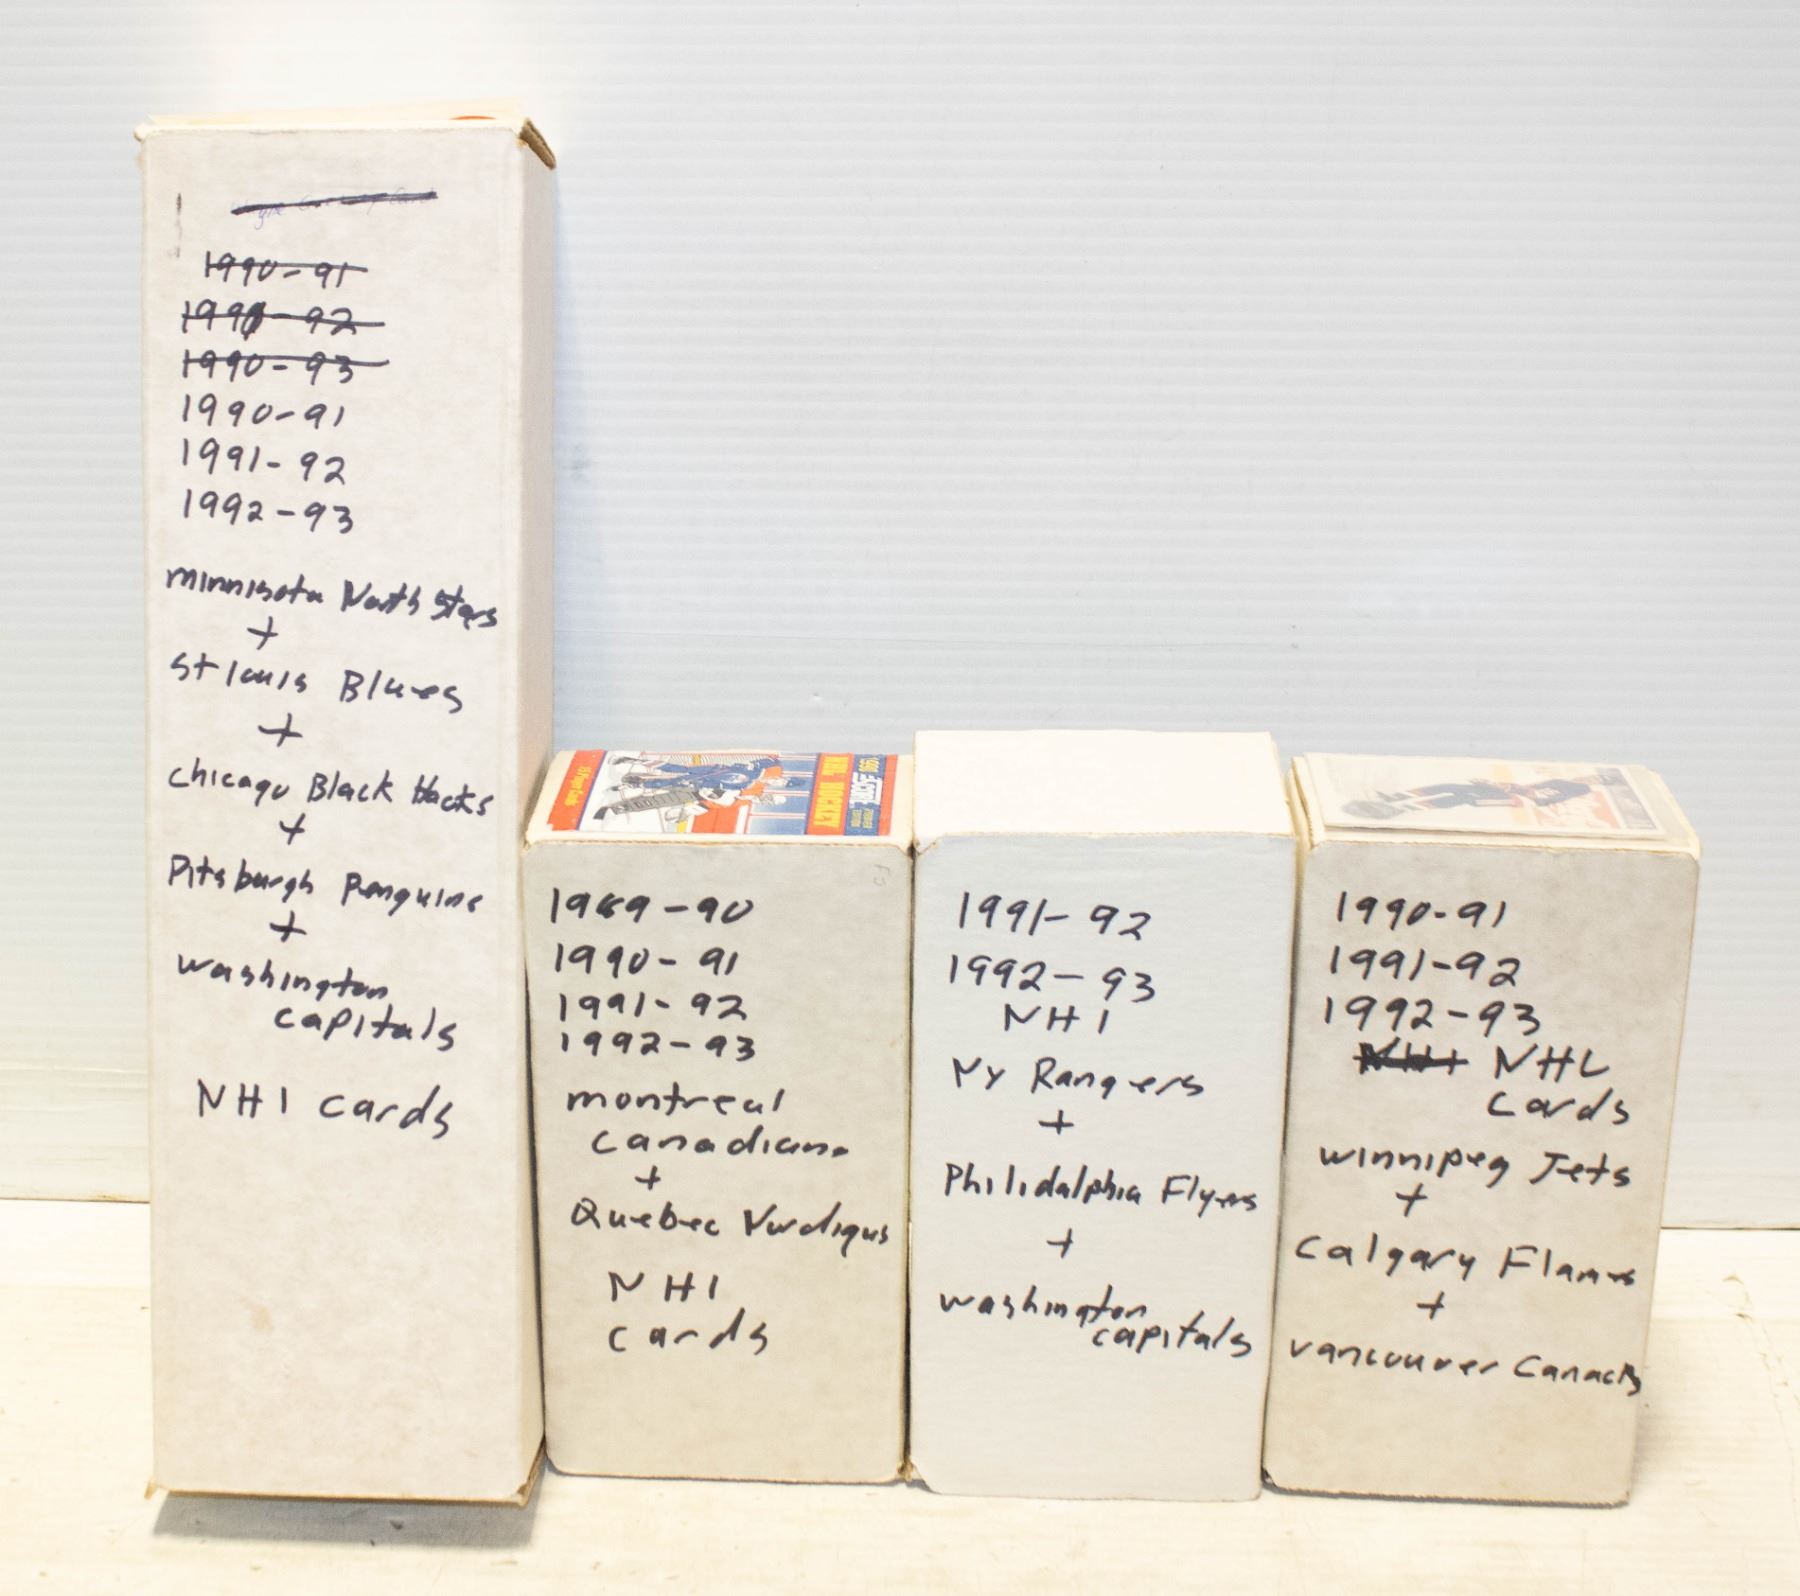 1990-91
1991-92
1990-93
1990-91
1991-92
1992-93
minnisota North Stars
+
St louis Blues
+
chicago Black Hacks
+
Pitsburgh Penguins
+
washington
capitals
NHl cards
15 Player Cards
NHL HOCKEY
1991 SCORE
1989-90
1990-91
1991-92
1992-93
montreal
canadians
+
Quebec Nordiqus
NHl
cards
1991-92
1992-93
NHl
NY Rangers
+
Philidalphia Flyers
+
washington
capitals
1990-91
1991-92
1992-93
NHl NHL
cards
winnipeg Jets
+
calgary Flames
+
vancouver Canacks